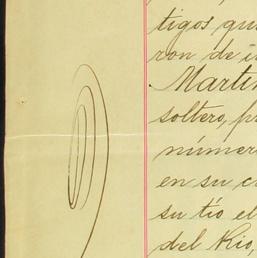 tigos qu
ron de i
Martin
soltero, p
númer
en su c
su tío el
del Rio,